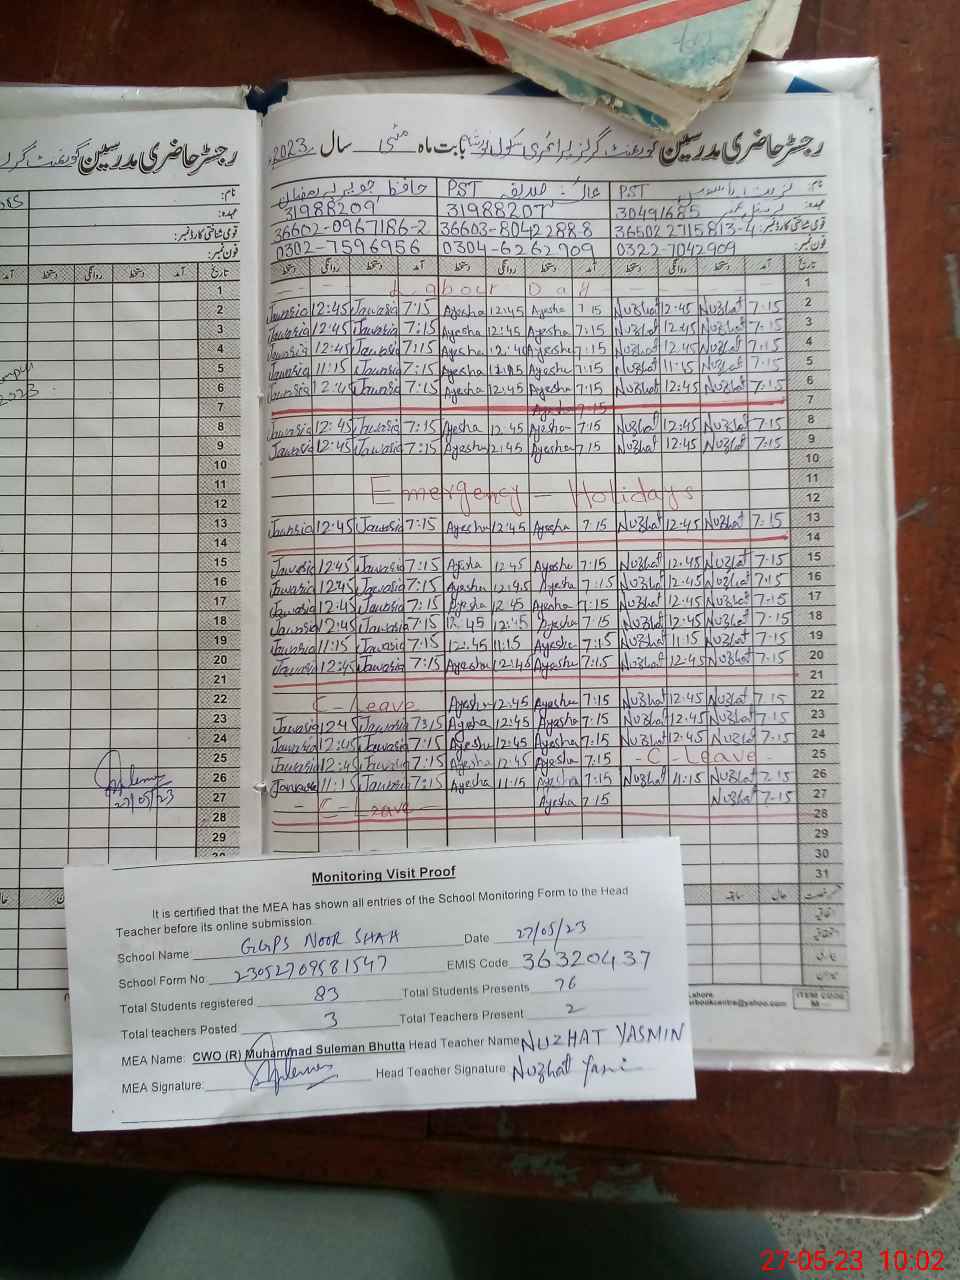 رجسٹر حاضری مدرسین گورنمنٹ گرلز پرائمری سکول نورشاہ بابت ماہ مئی سال 2023ء
رجسٹر حاضری مدرسین گورنمنٹ گرلز
نام: PST PST
عہدہ: 30491685 31988207 31988209
قومی شناختی کارڈ نمبر: 36502 2715813-4 36603-8042288-8 36602-0967186-2
فون نمبر: 0322-7042909 0304-6262909 0302-7596956
تاریخ آمد دستخط روانگی دستخط آمد دستخط روانگی دستخط آمد دستخط روانگی دستخط
1 Labour Day
2 Jawasia 12:45 Jawasia 7:15 Ayesha 12:45 Ayesha 7:15 Nuzhat 12:45 Nuzhat 7:15
3 Jawasia 12:45 Jawasia 7:15 Ayesha 12:45 Ayesha 7:15 Nuzhat 12:45 Nuzhat 7:15
4 Jawasia 12:45 Jawasia 7:15 Ayesha 12:45 Ayesha 7:15 Nuzhat 12:45 Nuzhat 7:15
5 Jawasia 11:15 Jawasia 7:15 Ayesha Ayesha 7:15 Nuzhat 11:15 Nuzhat 7:15
6 Jawasia 12:45 Jawasia 7:15 Ayesha 12:45 Ayesha 7:15 Nuzhat 12:45 Nuzhat 7:15
7 Ayesha 7:15
8 Jawasia 12:45 Jawasia 7:15 Ayesha 12:45 Ayesha 7:15 Nuzhat 12:45 Nuzhat 7:15
9 Jawasia 12:45 Jawasia 7:15 Ayesha 12:45 Ayesha 7:15 Nuzhat 12:45 Nuzhat 7:15
10
11 Emergency - Holidays
12
13 Jawasia 12:45 Jawasia 7:15 Ayesha 12:45 Ayesha 7:15 Nuzhat 12:45 Nuzhat 7:15
14
15 Jawasia 12:45 Jawasia 7:15 Ayesha 12:45 Ayesha 7:15 Nuzhat 12:45 Nuzhat 7:15
16 Jawasia 12:45 Jawasia 7:15 Ayesha 12:45 Ayesha 7:15 Nuzhat 12:45 Nuzhat 7:15
17 Jawasia 12:45 Jawasia 7:15 Ayesha 12:45 Ayesha 7:15 Nuzhat 12:45 Nuzhat 7:15
18 Jawasia 12:45 Jawasia 7:15 12:45 12:45 Ayesha 7:15 Nuzhat 12:45 Nuzhat 7:15
19 Jawasia 11:15 Jawasia 7:15 12:45 11:15 Ayesha 7:15 Nuzhat 11:15 Nuzhat 7:15
20 Jawasia 12:45 Jawasia 7:15 Ayesha 12:45 Ayesha 7:15 Nuzhat 12:45 Nuzhat 7:15
21
22 C-Leave Ayesha 12:45 Ayesha 7:15 Nuzhat 12:45 Nuzhat 7:15
23 Jawasia 12:45 Jawasia 7:15 Ayesha 12:45 Ayesha 7:15 Nuzhat 12:45 Nuzhat 7:15
24 Jawasia 12:45 Jawasia 7:15 Ayesha 12:45 Ayesha 7:15 Nuzhat 12:45 Nuzhat 7:15
25 Jawasia 12:45 Jawasia 7:15 Ayesha 12:45 Ayesha 7:15 -C-Leave-
26 Jawasia 11:15 Jawasia 7:15 Ayesha 11:15 Ayesha 7:15 Nuzhat 11:15 Nuzhat 7:15
27 - C-Leave - Ayesha 7:15 Nuzhat 7:15
28
29
30
31
27/05/23
Monitoring Visit Proof
It is certified that the MEA has shown all entries of the School Monitoring Form to the Head
Teacher before its online submission.
School Name: GGPS NOOR SHAH Date 27/05/23
School Form No 23052709581547 EMIS Code 36320437
Total Students registered 83 Total Students Presents 76
Total teachers Posted 3 Total Teachers Present 2
MEA Name: CWO (R) Muhammad Suleman Bhutta Head Teacher Name NUZHAT YASMIN
MEA Signature: Head Teacher Signature Nuzhat
ahore.
rbookcentre@yahoo.com
ITEM CODE
27-05-23 10:02